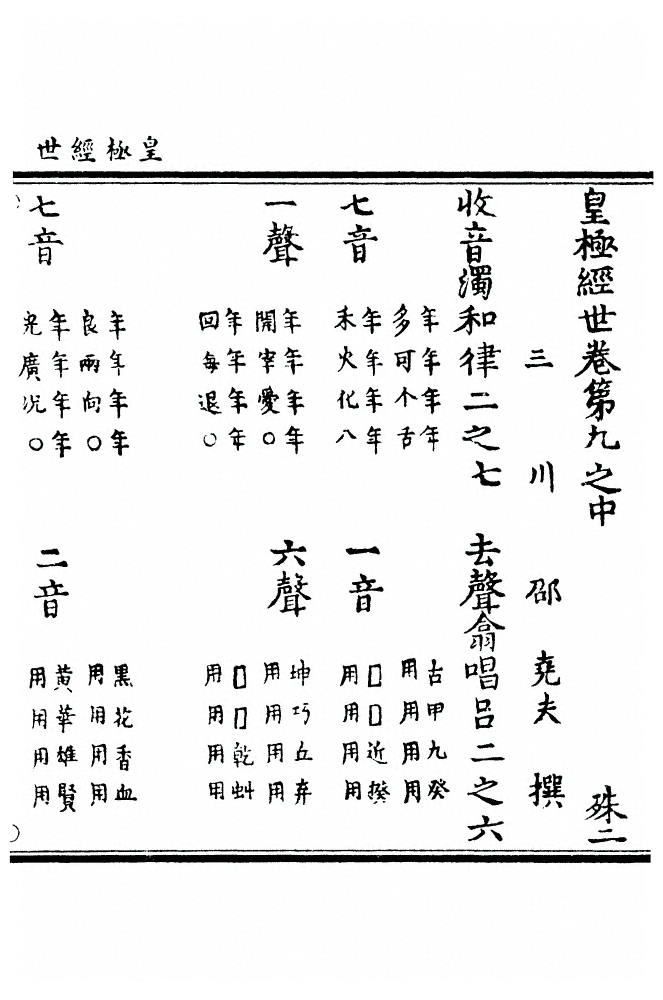 皇極經世
皇極經世卷第九之中 殊二
三川 邵堯夫 撰
收音濁和律二之七 去聲翕唱呂二之六
七音 一音
年年年年 古甲九癸
多可个舌 用用用用
年年年年 □□近揆
禾火化八 用用用用
一聲 六聲
年年年年 坤巧丘弃
開宰愛○ 用用用用
年年年年 □□乾虯
回每退○ 用用用用
七音 二音
年年年年 黑花香血
良兩向○ 用用用用
年年年年 黃華雄賢
光廣况○ 用用用用